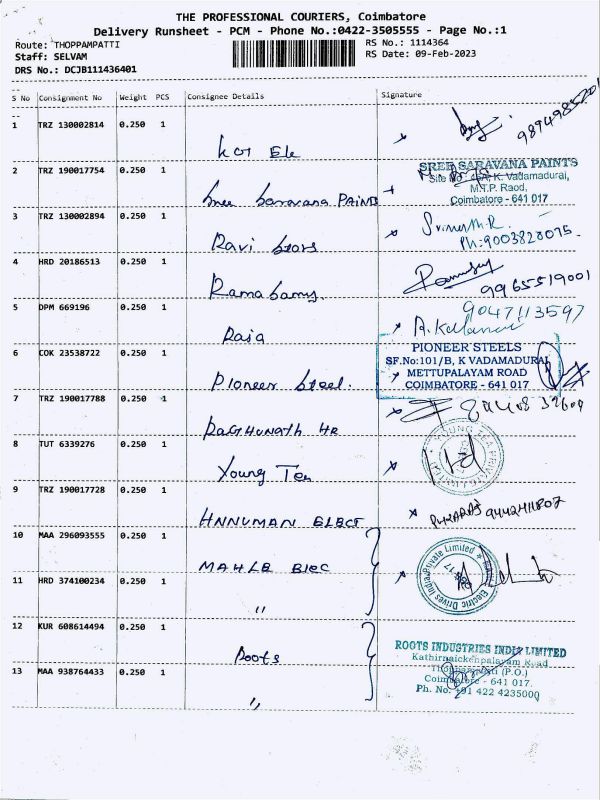 THE PROFESSIONAL COURIERS, Coimbatore
Delivery Runsheet - PCM - Phone No.:0422-3505555 - Page No.:1
Route: THOPPAMPATTI
RS No.: 1114364
Staff: SELVAM
RS Date: 09-Feb-2023
DRS No.: DCJB111436401
S No Consignment No Weight PCS Consignee Details Signature
1 TRZ 130002814 0.250 1
9894985201
2 TRZ 190017754 0.250 1 Sree Saravana PAINTS
SREE SARAVANA PAINTS
K. Vadamadurai,
M.T.P. Raod,
Coimbatore - 641 017
3 TRZ 130002894 0.250 1 Ravi
Ph:9003828095.
4 HRD 20186513 0.250 1 Ramasamy
9965519001
5 DPM 669196 0.250 1 Raja
9047113597
6 COK 23538722 0.250 1 Pioneer Steel.
PIONEER STEELS
SF.No:101/B, K VADAMADURAI
METTUPALAYAM ROAD
COIMBATORE - 641 017
7 TRZ 190017788 0.250 1 RAGHUNATH HR
8 TUT 6339276 0.250 1 Young Tea
YOUNG TEA PRIVATE LIMITED
9 TRZ 190017728 0.250 1 HANUMAN ELECT
9442411807
10 MAA 296093555 0.250 1 MAHLE Elec
Electric Drives India Private Limited
11 HRD 374100234 0.250 1 "
12 KUR 608614494 0.250 1 Roots
ROOTS INDUSTRIES INDIA LIMITED
Kathirnaickenpalayam Road
Thoppampatti (P.O.)
Coimbatore - 641 017.
Ph. No: +91 422 4235000
13 MAA 938764433 0.250 1 "